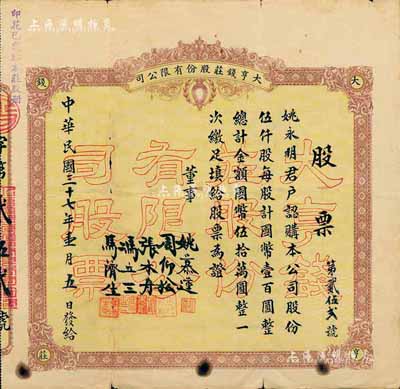 大亨錢莊股份有限公司
股票
第貳伍貳號
姚永明君戶認購本公司股份
伍仟股每股計國幣壹百圓整
總計金額國幣伍拾萬圓整一
次繳足填給股票為證
董事
姚慕蓮
張木舟
馮立三
馬濟生
中華民國三十七年 月五日發給
大
錢
亨
莊
大亨錢莊
股份
有限公
司股票
字第貳伍貳號